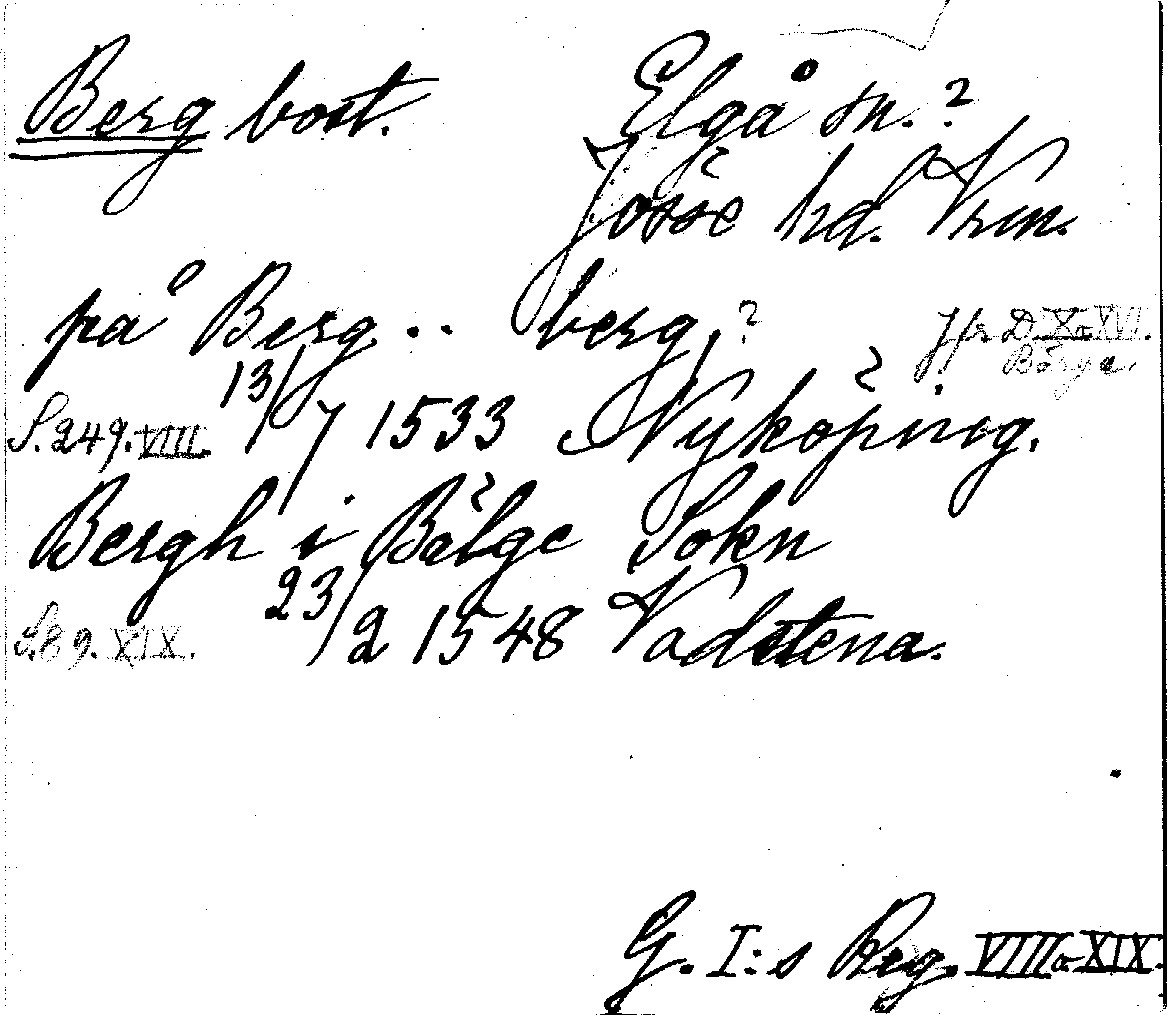 Berg bost. Elgå sn.?
Jösse hd. Vrm.
på Berg .. berg ?
Jfr D X o. XVI.
Börga.
S. 249. VIII. 13/7 1533 Nyköping.
Bergh i Bölge Sokn
S. 89. XIX. 23/2 1548 Vadstena.
G. I:s Reg. VIII o. XIX.